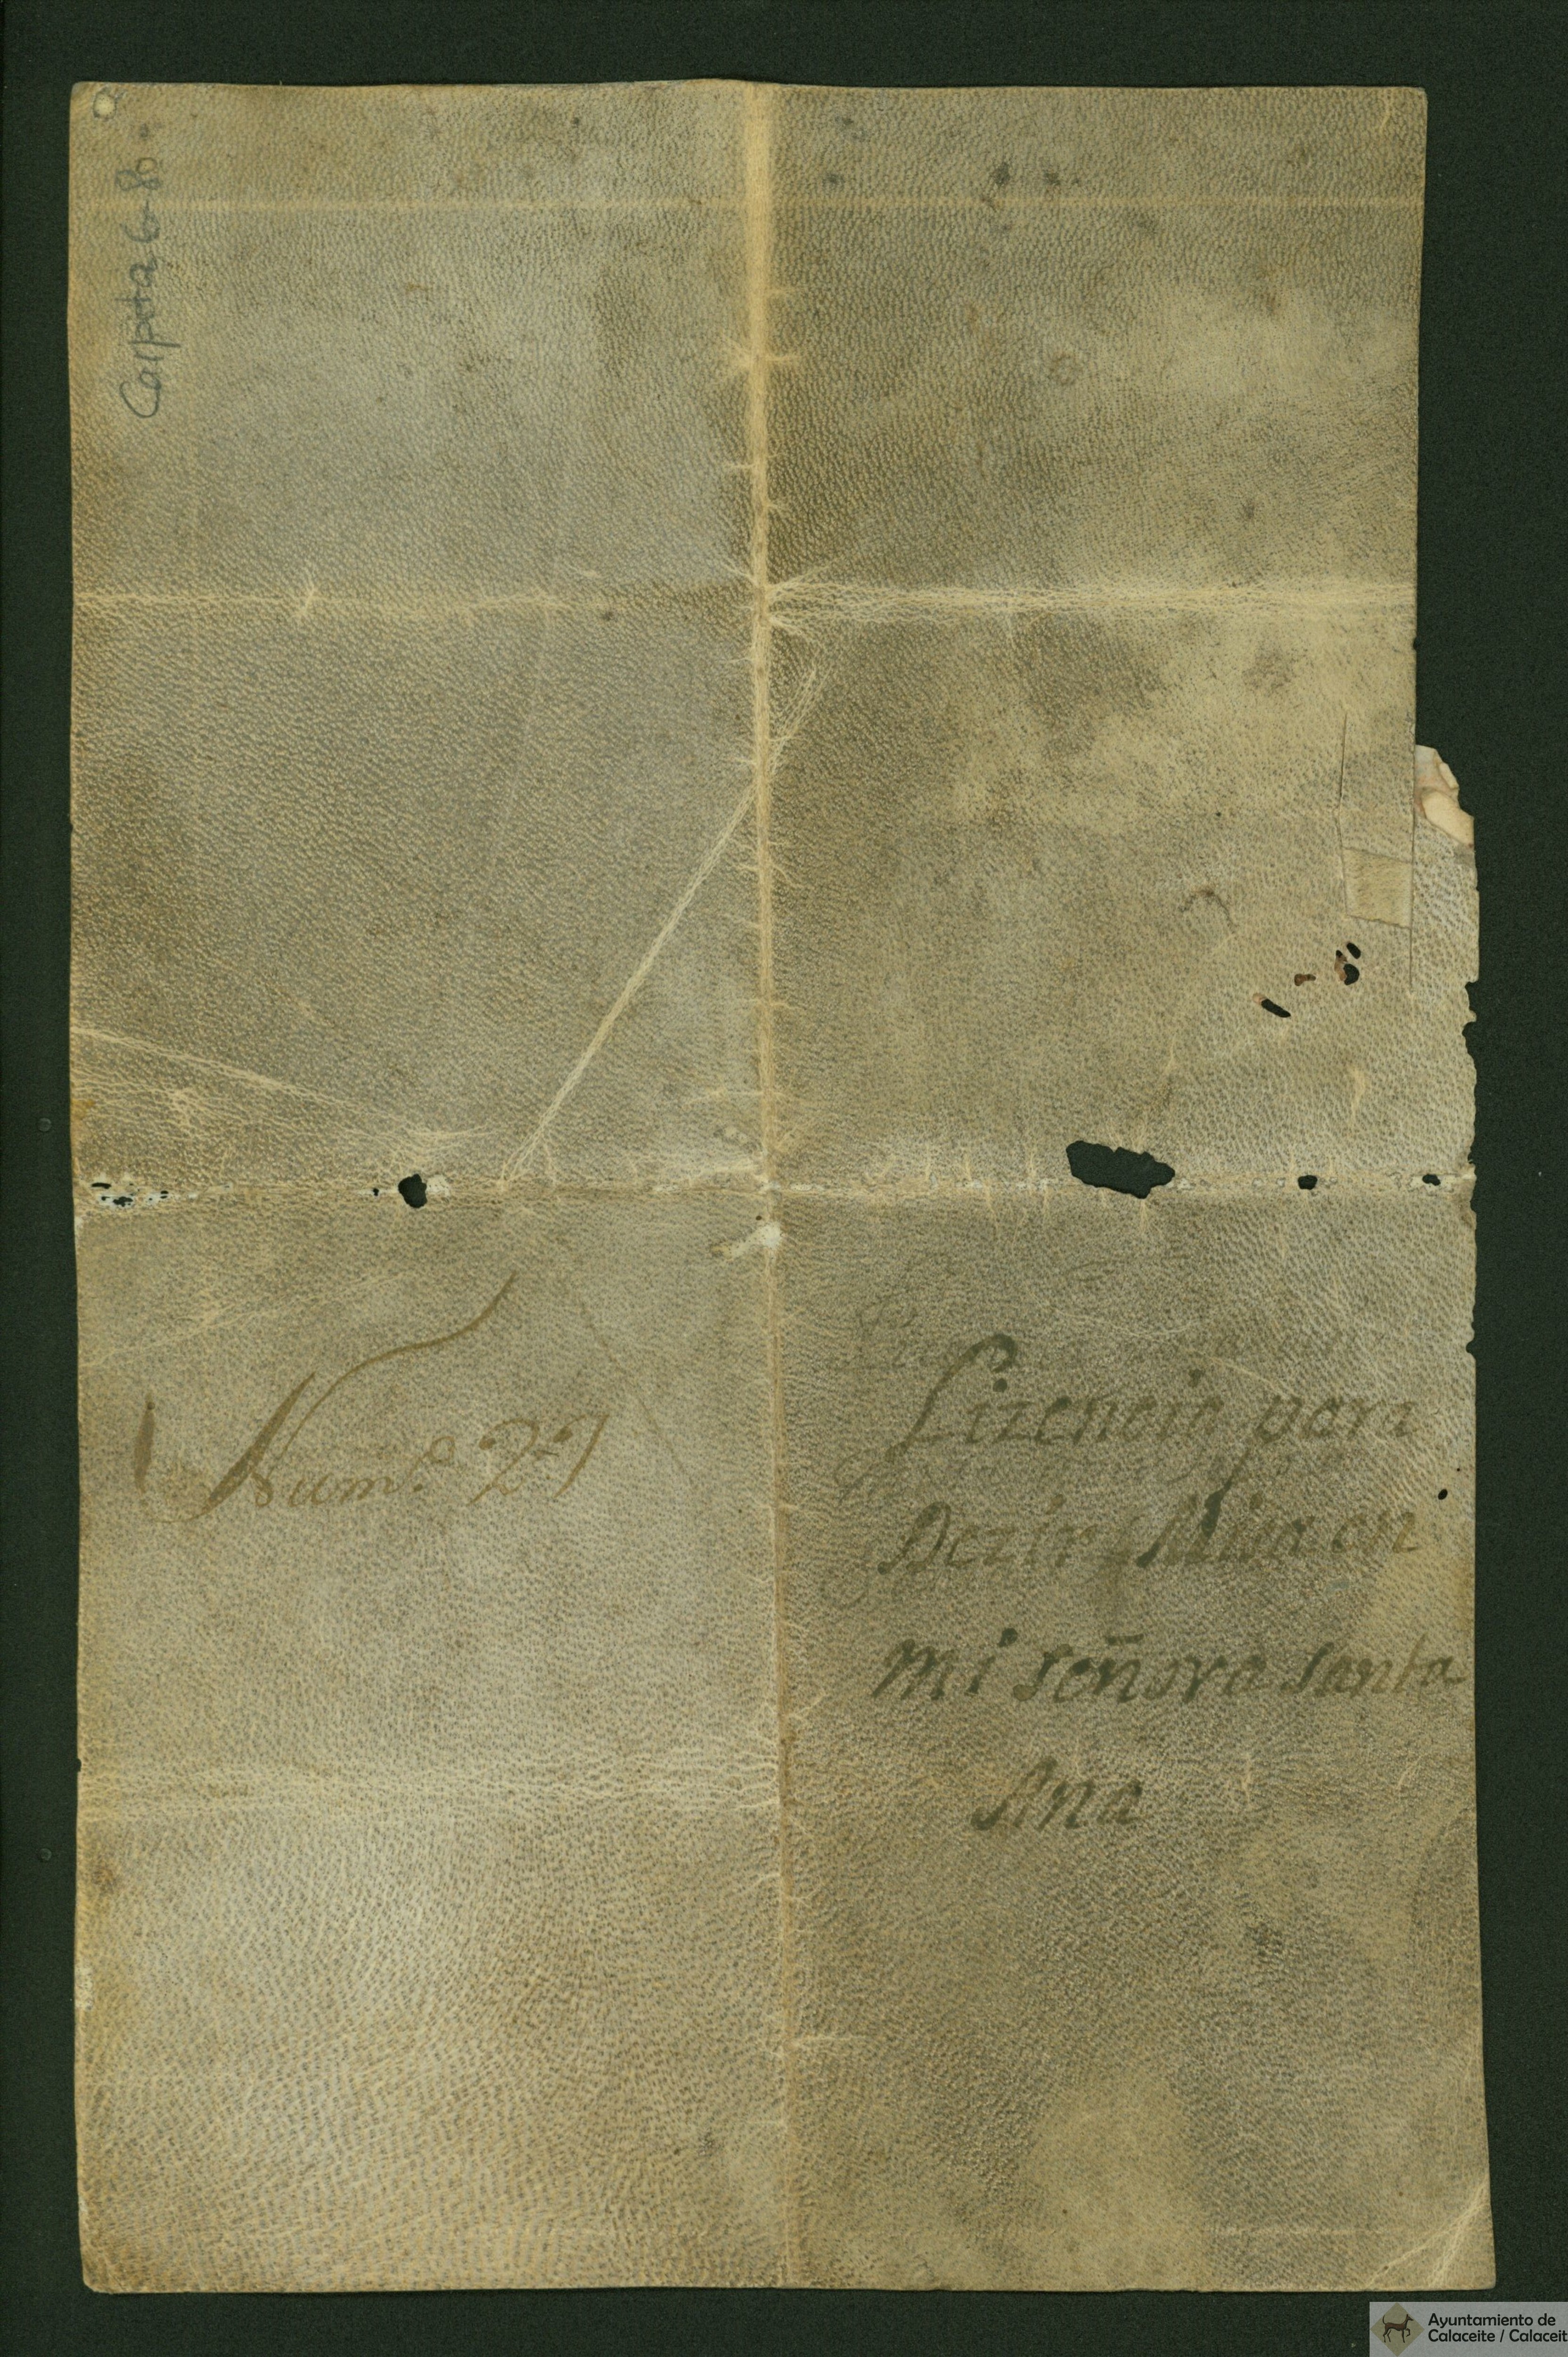 Carpeta 6-80
Num.º 29
Lizencia para
Dezir Misa en
mi señora santa
Ana
Ayuntamiento de
Calaceite / Calaceit